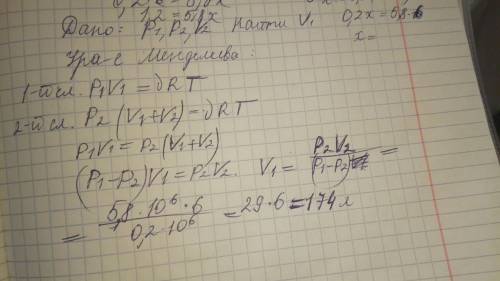 1,2 = 5,8x
Дано: P₁, P₂, V₂ Найти V₁ 0,2x = 5,8·6
x=
Ура-е Менделеева:
1-й сл. P₁V₁ = νRT
2-й сл. P₂ (V₁+V₂) = νRT
P₁V₁ = P₂ (V₁+V₂)
(P₁-P₂)V₁ = P₂V₂. V₁ = P₂V₂/(P₁-P₂) =
= 5,8·10⁶·6/0,2·10⁶ = 29·6 = 174 л